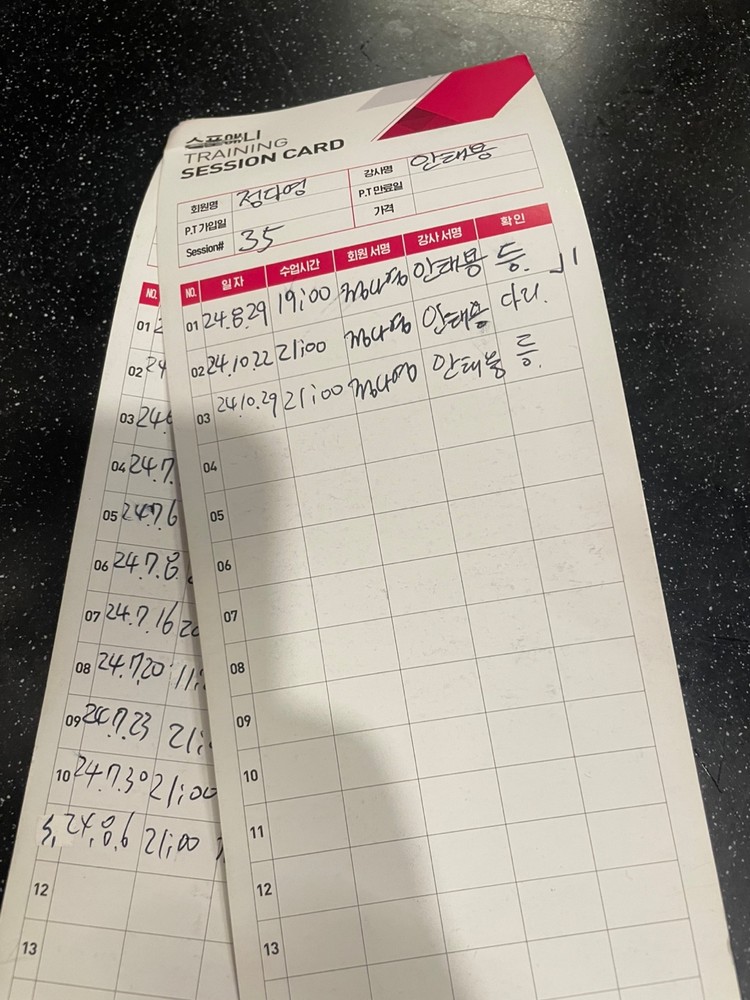 스포애니
TRAINING
SESSION CARD
회원명 정다영 강사명 안태용
P.T 가입일 P.T 만료일
Session# 35 가격
NO. 일 자 수업시간 회원 서명 강사 서명 확 인
01 24.8.29 19:00 정다영 안태용 등.
02 24.10.22 21:00 정다영 안태용 다리.
03 24.10.29 21:00 정다영 안태용 등.
04
05
06
07
08
09
10
11
12
13
NO.
01
02 24
03 24.
04 24.7.
05 24.7.6
06 24.7.8
07 24.7.16
08 24.7.20 11:
09 24.7.23 21:
10 24.7.30 21:00
24.8.6 21:00
12
13